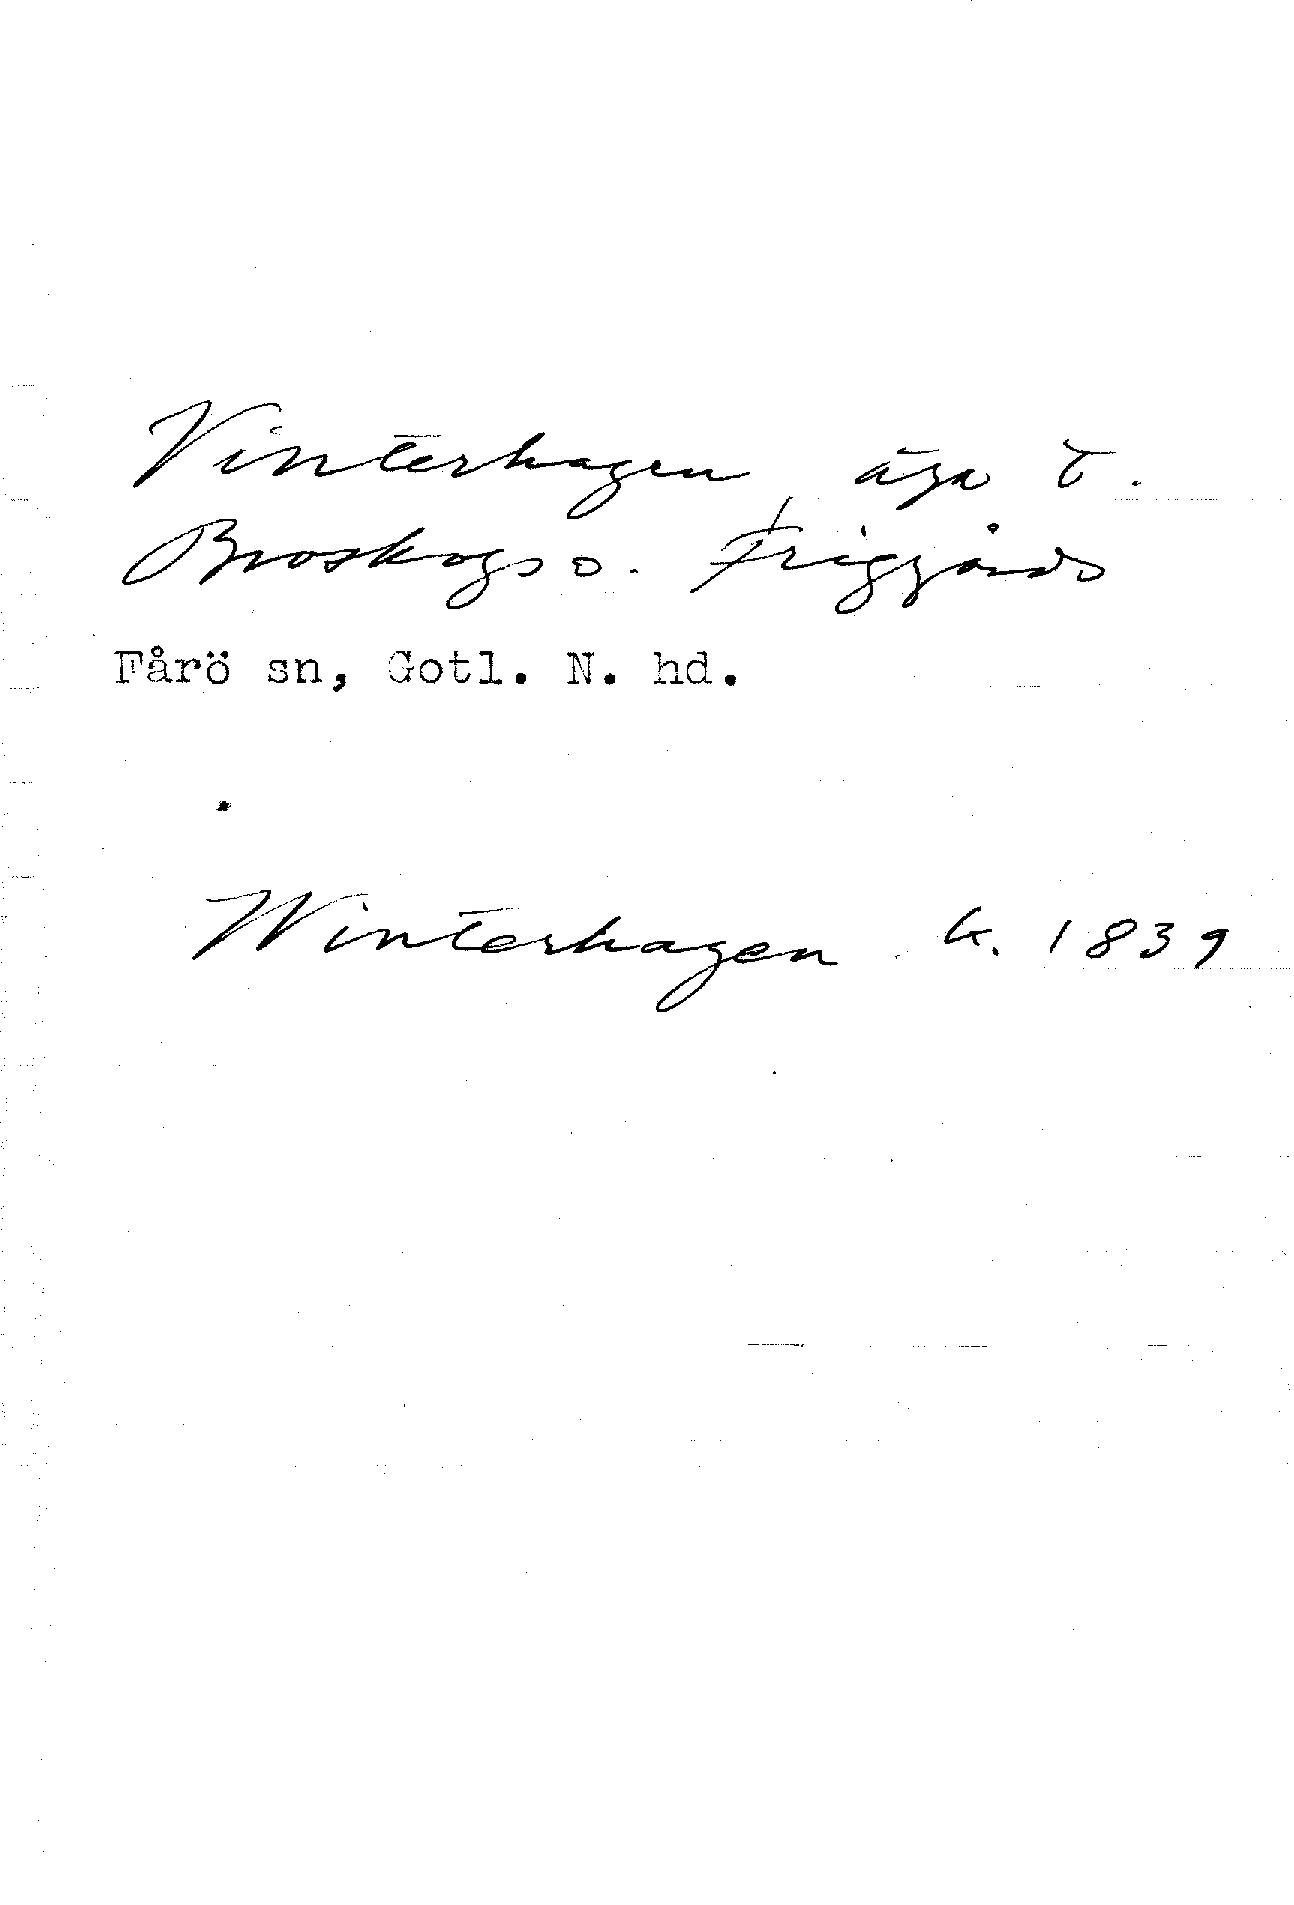 Vinterhagen, äga t.
Broskogs o. Friggårds
Fårö sn, Gotl. N. hd.
Winterhagen k. 1839